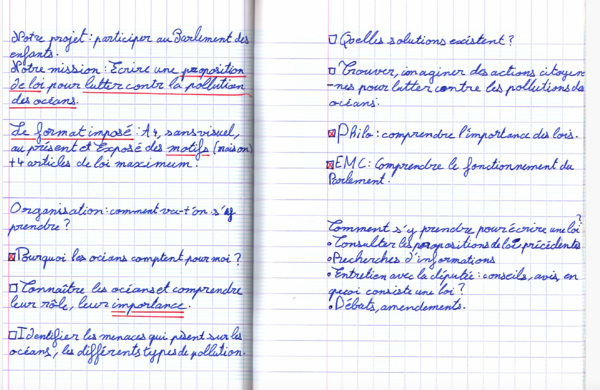 Notre projet : participer au Parlement des
enfants.
Notre mission : Ecrire une proposition
de loi pour lutter contre la pollution
des océans.
Le format imposé : A4, sans visuel,
au présent et Exposé des motifs (raison)
+4 articles de loi maximum.
Organisation : comment va-t'on s'y
prendre ?
☒ Pourquoi les océans comptent pour moi ?
☐ Connaître les océans et comprendre
leur rôle, leur importance.
☐ Identifier les menaces qui pèsent sur les
océans, les différents types de pollution.
☐ Quelles solutions existent ?
☐ Trouver, imaginer des actions citoyen-
-nes pour lutter contre les pollutions des
océans.
☒ Philo : comprendre l'importance des lois.
☒ EMC : Comprendre le fonctionnement du
Parlement.
Comment s'y prendre pour écrire une loi ?
• Consulter les propositions de loi précédentes
• Recherches d'informations
• Entretien avec la députée : conseils, avis, en
quoi consiste une loi ?
• Débats, amendements.